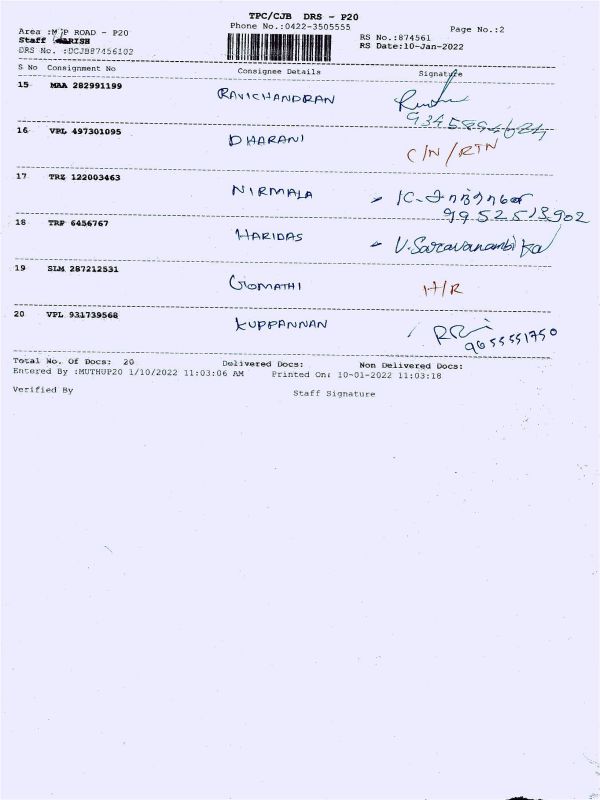 TPC/CJB DRS - P20
Phone No.:0422-3505555
Page No.:2
Area : ROAD - P20
Staff
DRS No. :DCJB87456102
RS No.:874561
RS Date:10-Jan-2022
S No Consignment No Consignee Details Signature
15 MAA 282991199 RAVICHANDRAN
16 VPL 497301095 DHARANI C/N/RTN
17 TRZ 122003463 NIRMALA
9952513902
18 TRP 6456767 HARIDAS V.Saravanambika
19 SLM 287212531 GOMATHI H/R
20 VPL 931739568 KUPPANNAN
9655551750
Total No. Of Docs: 20 Delivered Docs: Non Delivered Docs:
Entered By :MUTHUP20 1/10/2022 11:03:06 AM Printed On: 10-01-2022 11:03:18
Verified By Staff Signature